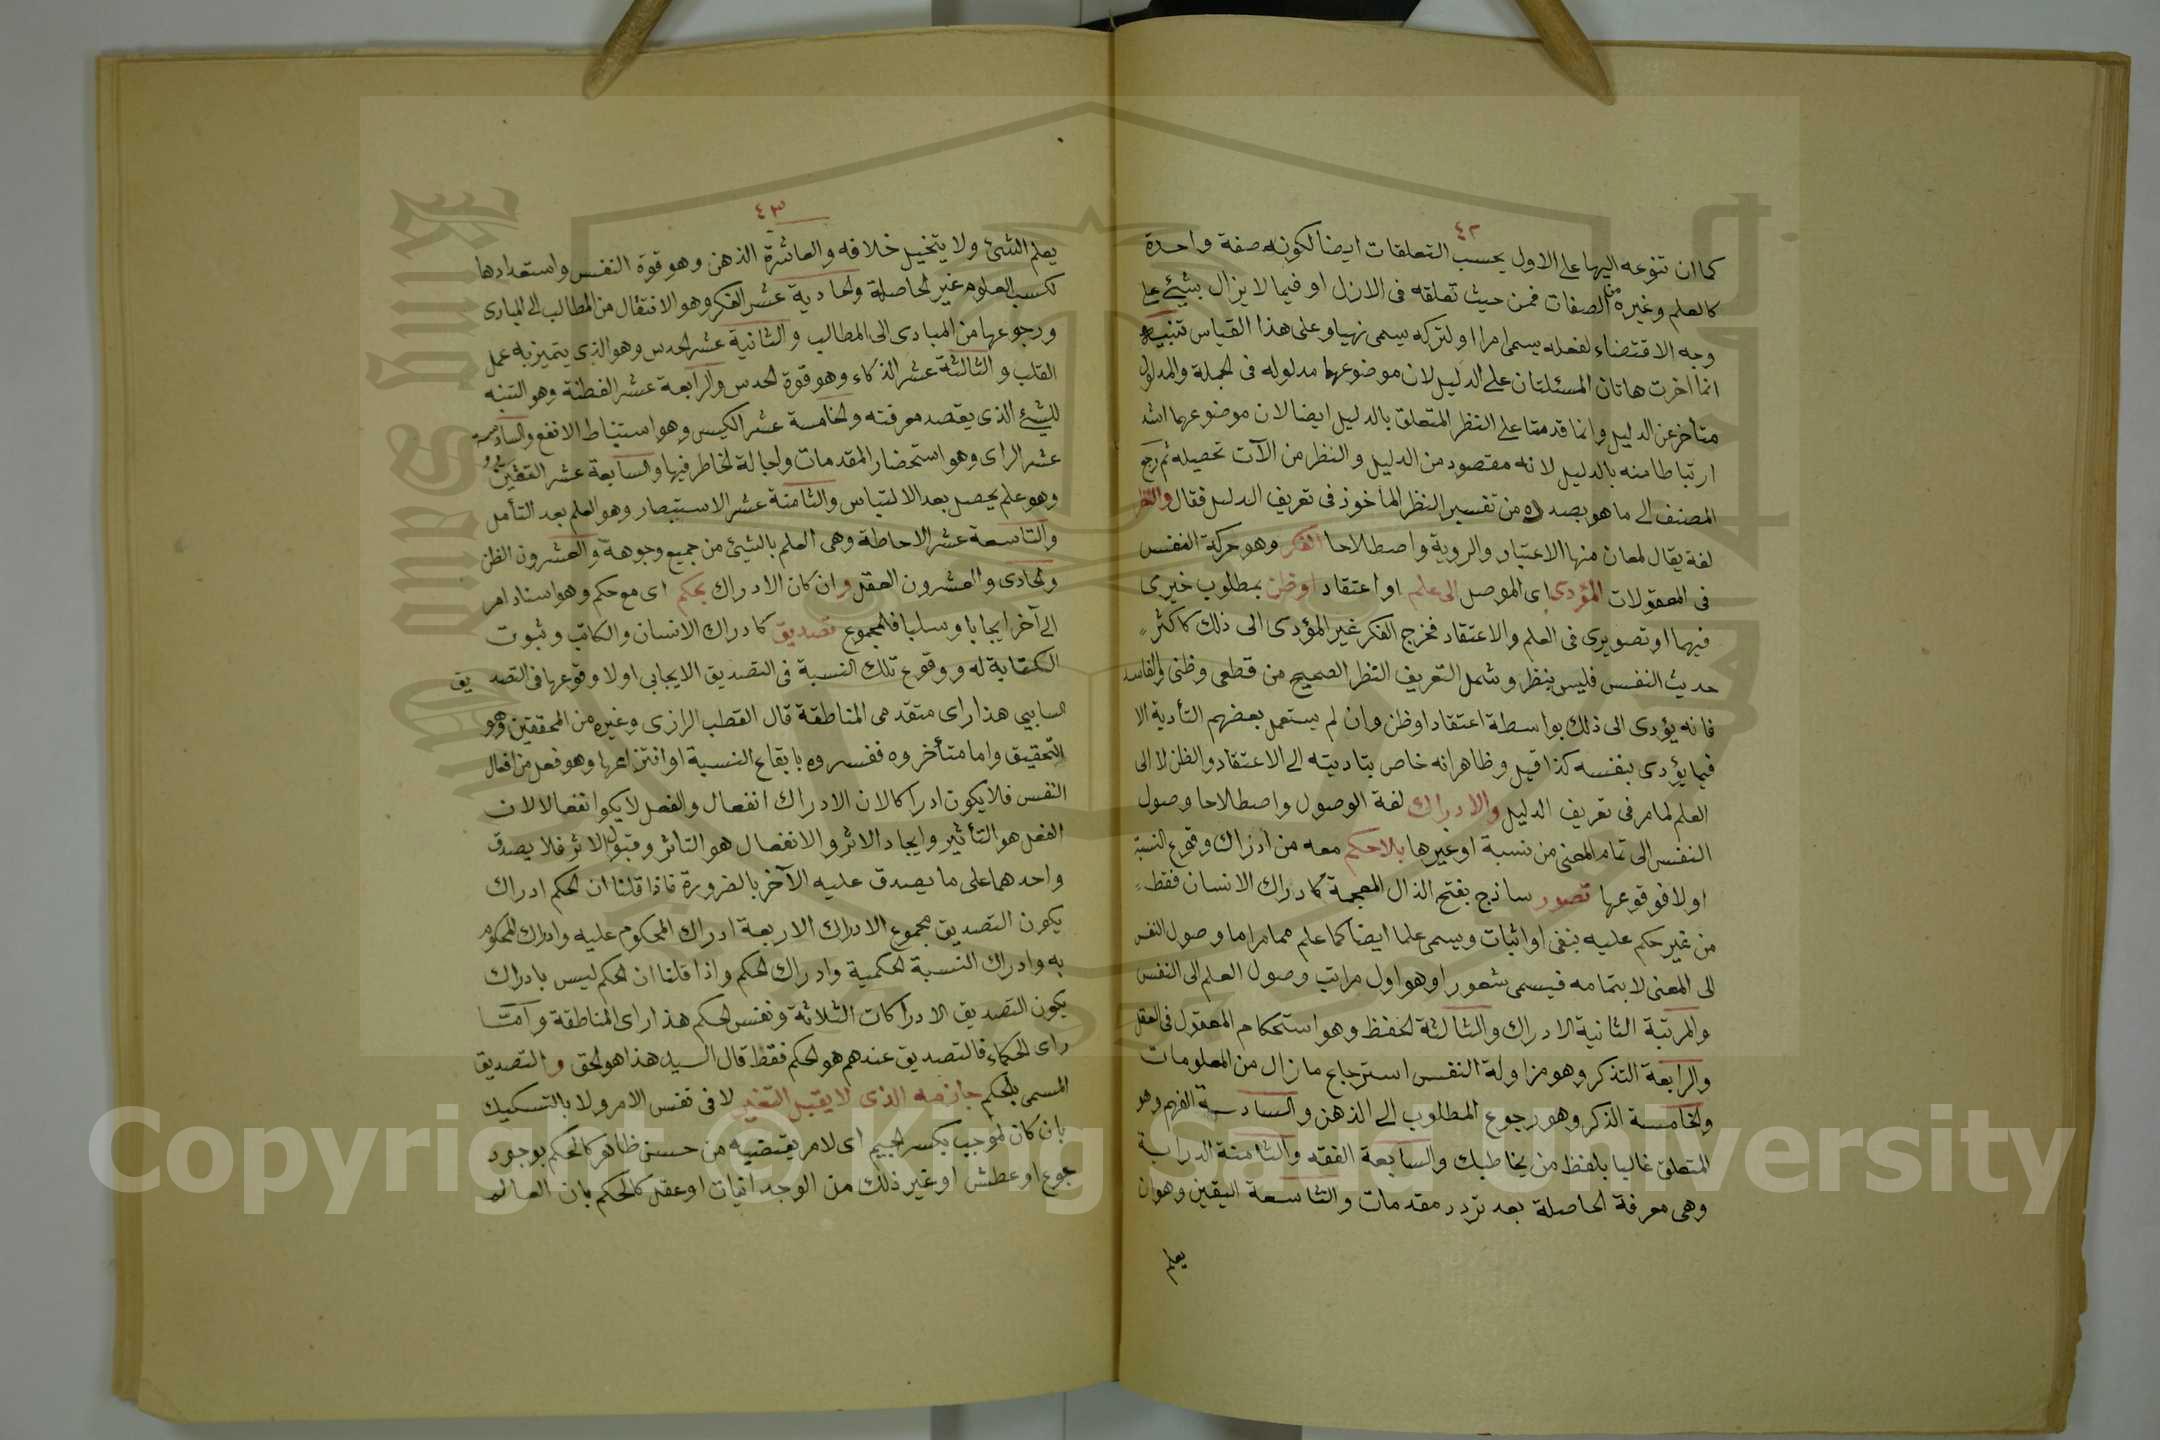 ٤٢
كما ان تنوعه اليها على الاول بحسب التعلقات ايضا لكونه صفة واحدة
كالعلم وغيره من الصفات فمن حيث تعلقه فى الازل او فيما لا يزال بشيئ على
وجه الاقتضاء لفعله يسمى امرا او لتركه يسمى نهيا وعلى هذا القياس تنبيه
انما اخرت هاتان المسئلتان على الدليل لان موضوعهما مدلوله فى الجملة والمدلول
متأخر عن الدليل وانما قدمتا على النظر المتعلق بالدليل ايضا لان موضوعهما اشد
ارتباطا منه بالدليل لانه مقصود من الدليل والنظر من الآت تحصيله ثم رجع
المصنف الى ما هو بصدده من تفسير النظر المأخوذ فى تعريف الدليل فقال والنظر
لغة يقال لمعان منها الاعتبار والروية واصطلاحا الفكر وهو حركة النفس
فى المعقولات المؤدى اى الموصل الى علم او اعتقاد او ظن بمطلوب خبرى
فيهما او تصويرى فى العلم والاعتقاد فخرج الفكر غير المؤدى الى ذلك كاكثر
حديث النفس فليس بنظر وشمل التعريف النظر الصحيح من قطعى وظنى والفاسد
فانه يؤدى الى ذلك بواسطة اعتقاد او ظن وان لم يستعمل بعضهم التأدية الا
فيما يؤدى بنفسه كذا قيل وظاهر انه خاص بتاديته الى الاعتقاد والظن لا الى
العلم لما مر فى تعريف الدليل والادراك لغة الوصول واصطلاحا وصول
النفس الى تمام المعنى من نسبة او غيرها بلا حكم معه من ادراك وقوع النسبة
او لا فوقوعها تصور ساذج بفتح الذال المعجمة كادراك الانسان فقط
من غير حكم عليه بنفى او اثبات ويسمى علما ايضا كما علم مما مر اما وصول النفس
الى المعنى لا بتمامه فيسمى شعورا وهو اول مراتب وصول العلم الى النفس
والمرتبة الثانية الادراك والثالثة الحفظ وهو استحكام المعقول فى العقل
والرابعة التذكر وهو مزاولة النفس استرجاع ما زال من المعلومات
والخامسة الذكر وهو رجوع المطلوب الى الذهن والسادسة الفهم وهو
المتعلق غالبا بلفظ من يخاطبك والسابعة الفقه والثامنة الدراية
وهى معرفة الحاصلة بعد تردد مقدمات والتاسعة اليقين وهو ان
يعلم
٤٣
يعلم الشئ ولا يتخيل خلافه والعاشرة الذهن وهو قوة النفس واستعدادها
لكسب العلوم غير الحاصلة والحادية عشر الفكر وهو الانتقال من المطالب الى المبادى
ورجوعها من المبادى الى المطالب والثانية عشر الحدس وهو الذى يتميز به عمل
القلب والثالثة عشر الذكاء وهو قوة الحدس والرابعة عشر الفطنة وهو التنبه
للشيئ الذى يقصد معرفته والخامسة عشر الكيس وهو استنباط الانفع والسادسة
عشر الراى وهو استحضار المقدمات واجالة الخاطر فيها والسابعة عشر التفنن
وهو علم يحصل بعد الالتباس والثامنة عشر الاستبصار وهو العلم بعد التأمل
والتاسعة عشر الاحاطة وهى العلم بالشئ من جميع وجوهه والعشرون الظن
والحادى والعشرون العقل وان كان الادراك بحكم اى مع حكم وهو اسناد امر
الى آخر ايجابا او سلبا فالمجموع تصديق كادراك الانسان والكاتب وثبوت
الكتابة له ووقوع تلك النسبة فى التصديق الايجابى او لا وقوعها فى التصديق
السلبى هذا راى متقدمى المناطقة قال القطب الرازى وغيره من المحققين وهو
التحقيق واما متأخروه ففسروه بايقاع النسبة او انتزاعها وهو فعل من افعال
النفس فلا يكون ادراكا لان الادراك انفعال والفعل لا يكون انفعالا لان
الفعل هو التأثير وايجاد الاثر والانفعال هو التاثر وقبول الاثر فلا يصدق
واحدهما على ما يصدق عليه الآخر بالضرورة فاذا قلنا ان الحكم ادراك
يكون التصديق مجموع الادراك الاربعة ادراك المحكوم عليه وادراك المحكوم
به وادراك النسبة الحكمية وادراك الحكم واذا قلنا ان الحكم ليس بادراك
يكون التصديق الادراكات الثلاثة ونفس الحكم هذا راى المناطقة وامّا
راى الحكماء فالتصديق عندهم هو الحكم فقط قال السيد هذا هو الحق والتصديق
المسمى بالحكم جازمه الذى لا يقبل التغير لا فى نفس الامر ولا بالتشكيك
بان كان لموجب بكسر الجيم اى لامر يقتضيه من حس ظاهر كالحكم بوجود
جوع او عطش او غير ذلك من الوجدانيات او عقل كالحكم بان العالم